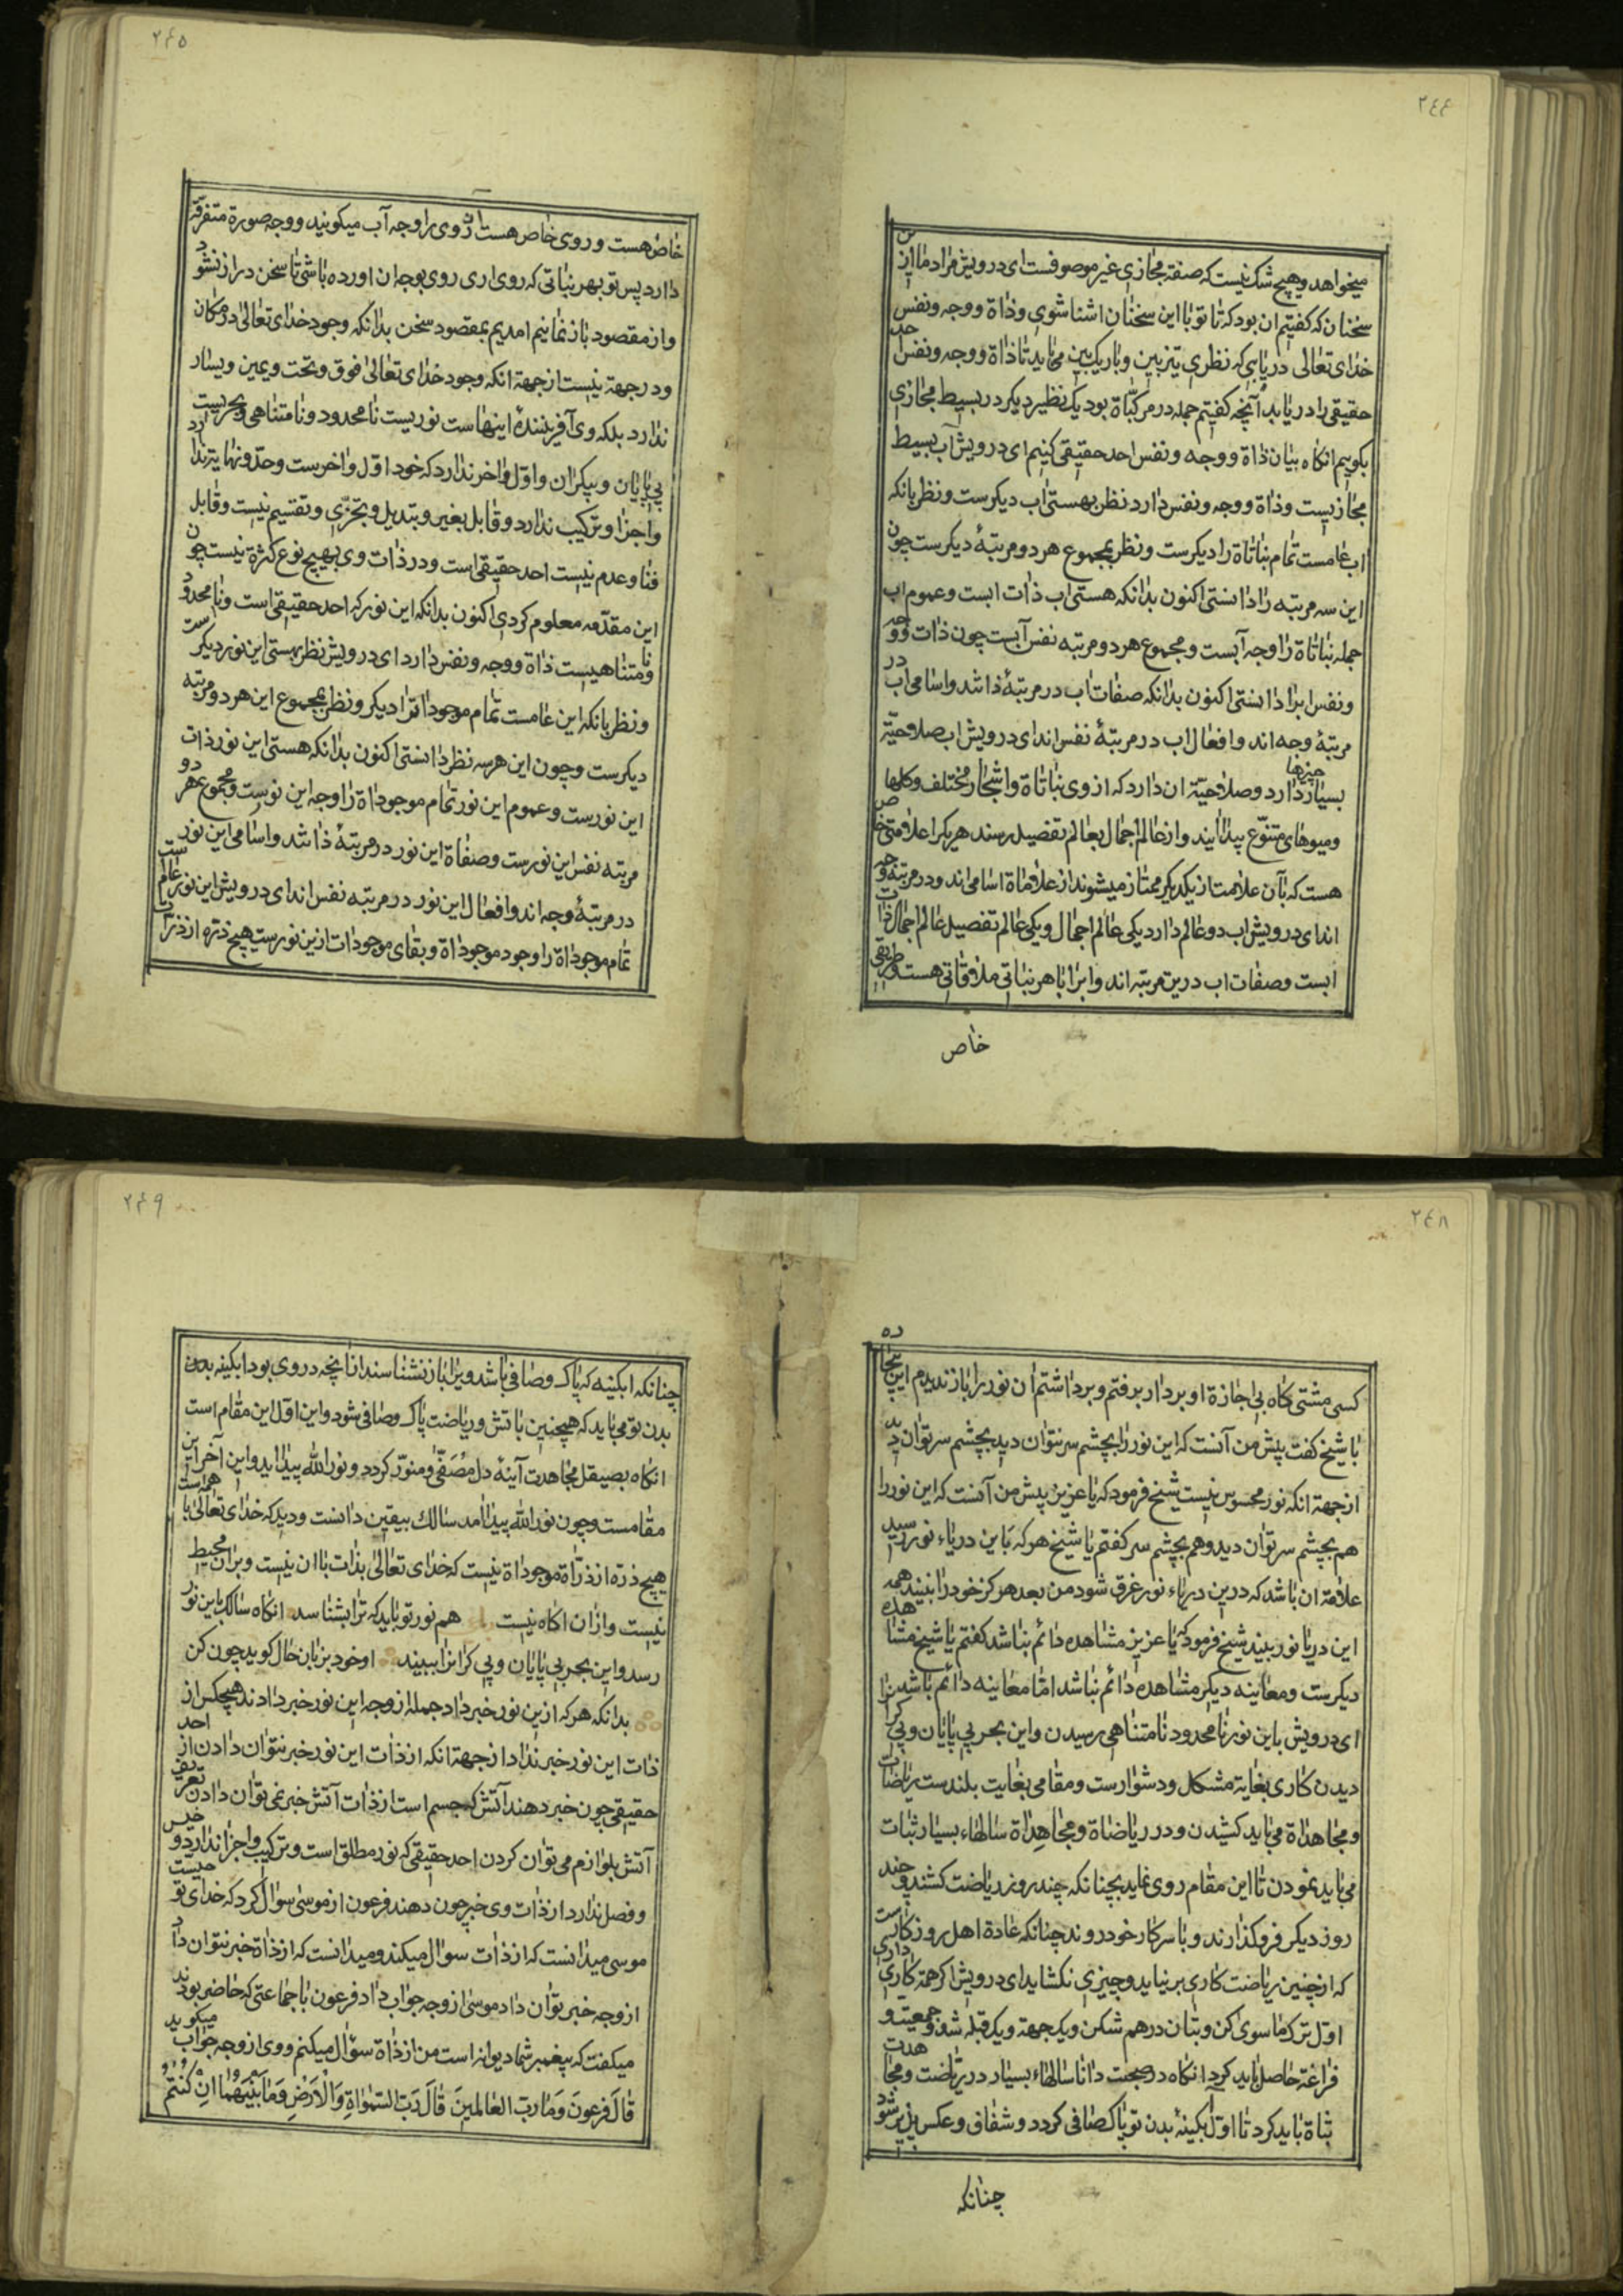 ٢٤٤
میخواهد و هیچ شک نیست که صفة مجازی غیر موصوفست ای درویش مراد ما ازین
سخنان که کفتیم ان بود که تا تو با این سخنان اشنا شوی و ذاة و وجه و نفس
خدای تعالی دریابی که نظری تیزبین و باریک بین می باید تا ذاة و وجه و نفس احد
حقیقی را دریابد آنچه کفتیم جمله در مرکباة بود یک نظیر دیکر در بسیط مجازی
بکویم انکاه بیان ذاة و وجه و نفس احد حقیقی کنیم ای درویش آب بسیط
مجازیست و ذاة و وجه و نفس دارد نظر بهستی اب دیکرست و نظر بانکه
اب عامست تمام نباتاة را دیکرست و نظر بمجموع هر دو مرتبهٔ دیکرست چون
این سه مرتبه را دانستی اکنون بدانکه هستی اب ذات ابست و عموم اب
جمله نباتاة را وجه آبست و مجموع هر دو مرتبه نفس آبست چون ذات و وجه
و نفس ابرا دانستی اکنون بدانکه صفات اب در مرتبهٔ ذاتند و اسامی اب در
مرتبهٔ وجه اند و افعال اب در مرتبهٔ نفس اند ای درویش اب صلاحیّة
بسیار چیزها دارد و صلاحیّة ان دارد که از وی نباتاة و اشجار مختلف و کلها
و میوهای متنوّع پیدا ایند و از عالم اجمال بعالم تفصیل رسند هر یکرا علامتی خاص
هست که بآن علامت از یکدیکر ممتاز میشوند از علاماة اسامی اند و در مرتبهٔ وجه
اند ای درویش اب دو عالم دارد یکی عالم اجمال و یکی عالم تفصیل عالم اجمال ذات
ابست و صفات اب درین مرتبه اند و ابرا با هر نباتی ملاقاتی هست و طریقی
خاص
٢٤٥
خاص هست و روی خاص هست آن روی را وجه آب میکویند و وجه صورة متفرّقه
دارد پس تو بهر نباتی که روی اری روی بوجه ان اورده باشی تا سخن دراز نشود
و از مقصود باز نمانیم امدیم بمقصود سخن بدانکه وجود خدای تعالی در مکان
و در جهة نیست از جهة انکه وجود خدای تعالی فوق و تحت و یمین و یسار
ندارد بلکه وی آفرینندهٔ اینهاست نوریست نامحدود و نامتناهی و بحریست
بی پایان و بیکران و اوّل و اخر ندارد که خود اوّل و اخرست و حدّ و نهایة ندارد
و اجزا و ترکیب ندارد و قابل بغیر و تبدیل و تجزّی و تقسیم نیست و قابل
فنا و عدم نیست احد حقیقی است و در ذات وی بهیچ نوع کثرة نیست چون
این مقدّمه معلوم کردی اکنون بدانکه این نور که احد حقیقی است و نامحدود
و نامتناهیست ذاة و وجه و نفس دارد ای درویش نظر بهستی این نور دیکرست
و نظر بانکه این عامست تمام موجوداترا دیکر و نظر بمجموع این هر دو مرتبه
دیکرست و چون این هر سه نظر دانستی اکنون بدانکه هستی این نور ذات
این نورست و عموم این نور تمام موجوداة را وجه این نورست و مجموع هر دو
مرتبه نفس این نورست و صفاة این نور در مرتبهٔ ذاتند و اسامی این نور
در مرتبهٔ وجه اند و افعال این نور در مرتبه نفس اند ای درویش این نور عالم ست
تمام موجوداة را و وجود موجوداة و بقای موجودات ازین نورست هیچ ذرّه از ذرّات
٢٤٨
کسی مشتی کاه بی اجازة او بردار برفتم و برداشتم آن نور را باز ندیدم این بیچاره
با شیخ کفت پیش من آنست که این نور را بچشم سر نتوان دید بچشم سر توان دید
از جهة انکه نور محسوس نیست شیخ فرمود که یا عزیز پیش من آنست که این نور را
هم بچشم سر توان دید و هم بچشم سر کفتم یا شیخ هر که باین دریاء نور رسید
علامة ان باشد که درین دریاء نور غرق شود من بعد هرکز خود را نبیند همه
این دریا نور بیند شیخ فرمود که یا عزیز مشاهده دائم نباشد کفتم یا شیخ مشاهده
دیکرست و معاینه دیکر مشاهده دائم نباشد امّا معاینه دائم باشد
ای درویش باین نور نامحدود نامتناهی رسیدن و این بحر بی پایان و بی کرانرا
دیدن کاری بغایة مشکل و دشوارست و مقامی بغایت بلندست ریاضات
و مجاهداة می باید کشیدن و در ریاضاة و مجاهداة سالهاء بسیار ثبات
می باید نمودن تا این مقام روی نماید بچنانکه چند روز ریاضت کشند و چند
روز دیکر فروکذارند و با سر کار خود روند چنانکه عادة اهل روزکارست
که از چنین ریاضت کاری بر نیاید و چیزی نکشاید ای درویش اکر همة کاری داری
اوّل ترک ما سوی کن و بتان درهم شکن و یک جهة و یک قبله شو و جمعیت و
فراغة حاصل باید کرد انکاه در صحبت دانا سالهاء بسیار در ریاضت و مجاهدت
ثباة باید کرد تا اوّل آبکینهٔ بدن تو پاک صافی کردد و شفاف و عکس پذیر شود
چنانکه
٢٤٩
چنانکه ابکینه که پاک و صافی باشد ویرا باز نشناسند انانچه در وی بود ابکینه بدن
بدن تو می باید که همچنین باتش و ریاضت پاک و صافی شود و این اوّل این مقام است
انکاه بصیقل مجاهدت آینهٔ دل مُصَفّیٰ و منوّر کردد و نور الله پیدا اید و این آخر این
مقامست و چون نور الله پیدا آمد سالک بیقین دانست و دید که خدای تعالی با همه است
هیچ ذرّه از ذرّاة موجوداة نیست که خدای تعالی بذات با ان نیست و بران محیط
نیست و ازان اکاه نیست هم نور تو باید که ترا بشناسد انکاه سالک باین نور
رسد و این بحر بی پایان و بی کرانرا ببیند او خود بزبان حال کوید چون کن
بدانکه هر که ازین نور خبر داد جمله از وجه این نور خبر دادند هیچکس از
ذات این نور خبر نداد از جهة انکه از ذات این نور خبر نتوان دادن از احد
حقیقی چون خبر دهند آتش که جسم است از ذات آتش خبر نمی توان دادن تعریف
آتش بلوازم می توان کردن احد حقیقی که نور مطلق است و ترکیب و اجزا ندارد و جنس
و فصل ندارد از ذات وی خبر چون دهند فرعون از موسی سوال کرد که خدای تو چیست
موسی میدانست که از ذات سوال میکند و میدانست که از ذاة خبر نتوان داد
از وجه خبر توان داد موسی از وجه جواب داد فرعون با جماعتی که حاضر بودند
میکفت که پیغمبر شما دیوانه است من از ذاة سؤال میکنم و وی از وجه جواب میکوید
قَالَ فرعونَ وَمَا ربّ العَالمینَ قَالَ رَبّ السّمٰوَاةِ وَالاَرَضِ وَمَا بَینَهُمَا اِنِ کُنتُم